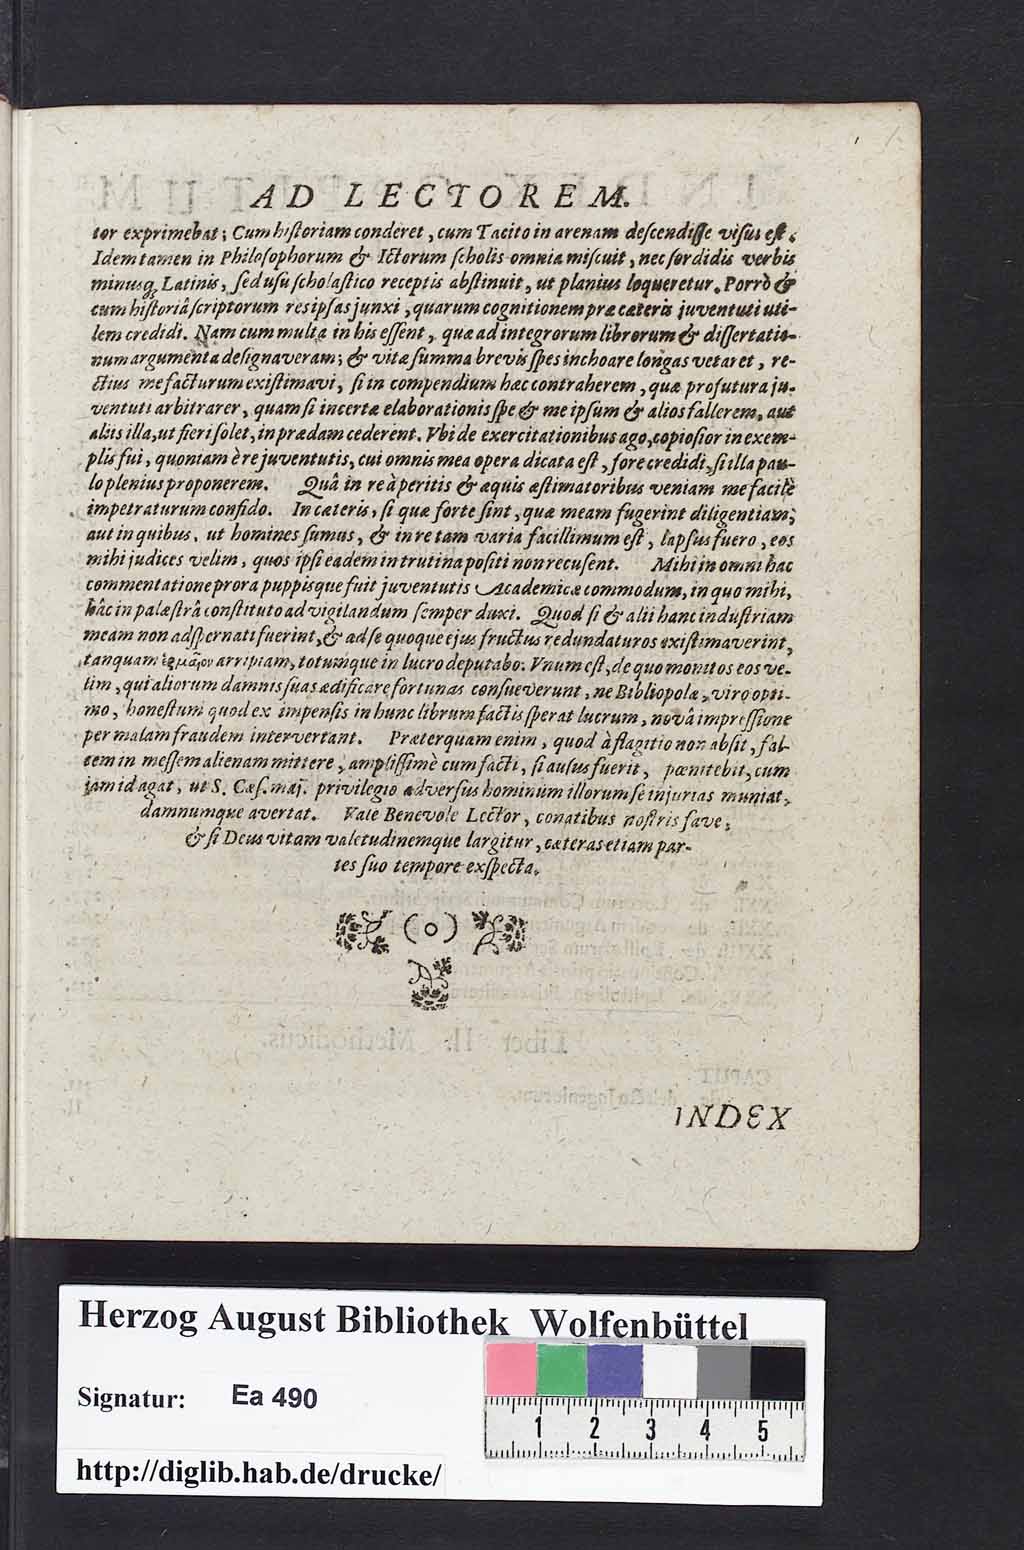 AD LECTOREM.
tor exprimebat; Cum historiam conderet, cum Tacito in arenam descendisse visus est.
Idem tamen in Philosophorum & Ictorum scholis omnia miscuit, nec sordidis verbis
minusq; Latinis, sed usu scholastico receptis abstinuit, ut planius loqueretur. Porrò &
cum historiâ scriptorum res ipsas junxi, quarum cognitionem præ cæteris juventuti uti-
lem credidi. Nam cum multa in his essent, quæ ad integrorum librorum & dissertatio-
num argumenta designaveram; & vitæ summa brevis spes inchoare longas vetaret, re-
ctius me facturum existimavi, si in compendium hæc contraherem, quæ profutura ju-
ventuti arbitrarer, quam si incertæ elaborationis spe & me ipsum & alios fallerem, aut
aliis illa, ut fieri solet, in prædam cederent. Vbi de exercitationibus ago, copiosior in exem-
plis fui, quoniam è re juventutis, cui omnis mea opera dicata est, fore credidi, si illa pau-
lo plenius proponerem. Quâ in re à peritis & æquis æstimatoribus veniam me facilè
impetraturum confido. In cæteris, si quæ forte sint, quæ meam fugerint diligentiam;
aut in quibus, ut homines sumus, & in re tam varia facillimum est, lapsus fuero, eos
mihi judices velim, quos ipsi eadem in trutina positi non recusent. Mihi in omni hac
commentatione prora puppisque fuit juventutis Academicæ commodum, in quo mihi,
hâc in palæstrâ constituto ad vigilandum semper duxi. Quod si & alii hanc industriam
meam non adspernati fuerint, & ad se quoque ejus fructus redundaturos existimaverint,
tanquam ἑρμαῖον arripiam, totumque in lucro deputabo. Vnum est, de quo monitos eos ve-
lim, qui aliorum damnis suas ædificare fortunas consueverunt, ne Bibliopolæ, viro opti-
mo, honestum quod ex impensis in hunc librum factis sperat lucrum, novâ impressione
per malam fraudem intervertant. Præterquam enim, quod à flagitio non absit, fal-
cem in messem alienam mittere, amplissimè cum facti, si ausus fuerit, pœnitebit, cum
jam id agat, ut S. Cæs. maj. privilegio adversus hominum illorum se injurias muniat,
damnumque avertat. Vale Benevole Lector, conatibus nostris fave;
& si Deus vitam valetudinemque largitur, cæteras etiam par-
tes suo tempore exspecta.
(o)
INDEX
Herzog August Bibliothek Wolfenbüttel
Signatur: Ea 490
1 2 3 4 5
http://diglib.hab.de/drucke/